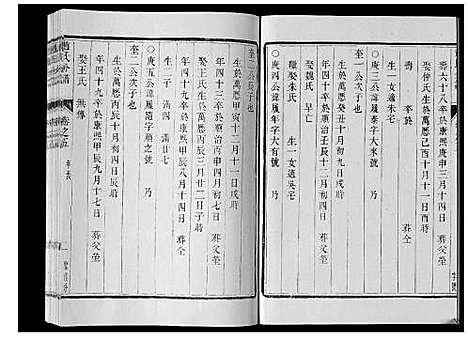 壽六十八卒於康熙庚申三月十四日
娶徐氏生於萬曆己酉十月十一日酉時
壽 卒於 葬
生一女適朱宅
庚三公諱履泰字大來號 乃
生於萬曆癸丑十月初九日戌時
年四十卒於順治壬辰十二月初四日
繼娶朱氏 生一女適吳宅
娶魏氏 早亡
庚四公諱履年字大有號 乃
奎二公長子也
生於萬曆甲寅十二月十一日戌時
年四十三卒於順治丙申四月初七 葬父塋
娶王氏生於萬曆丙辰三月廿二日子時
生二子 滿四 滿廿七
庚五公諱履隨字順之號 乃
奎二公次子也
生於萬曆丙辰十月初四日辰時
年四十九卒於康熙甲辰九月十七日 葬父塋
娶王氏 無傳
趙氏宗譜
卷之五